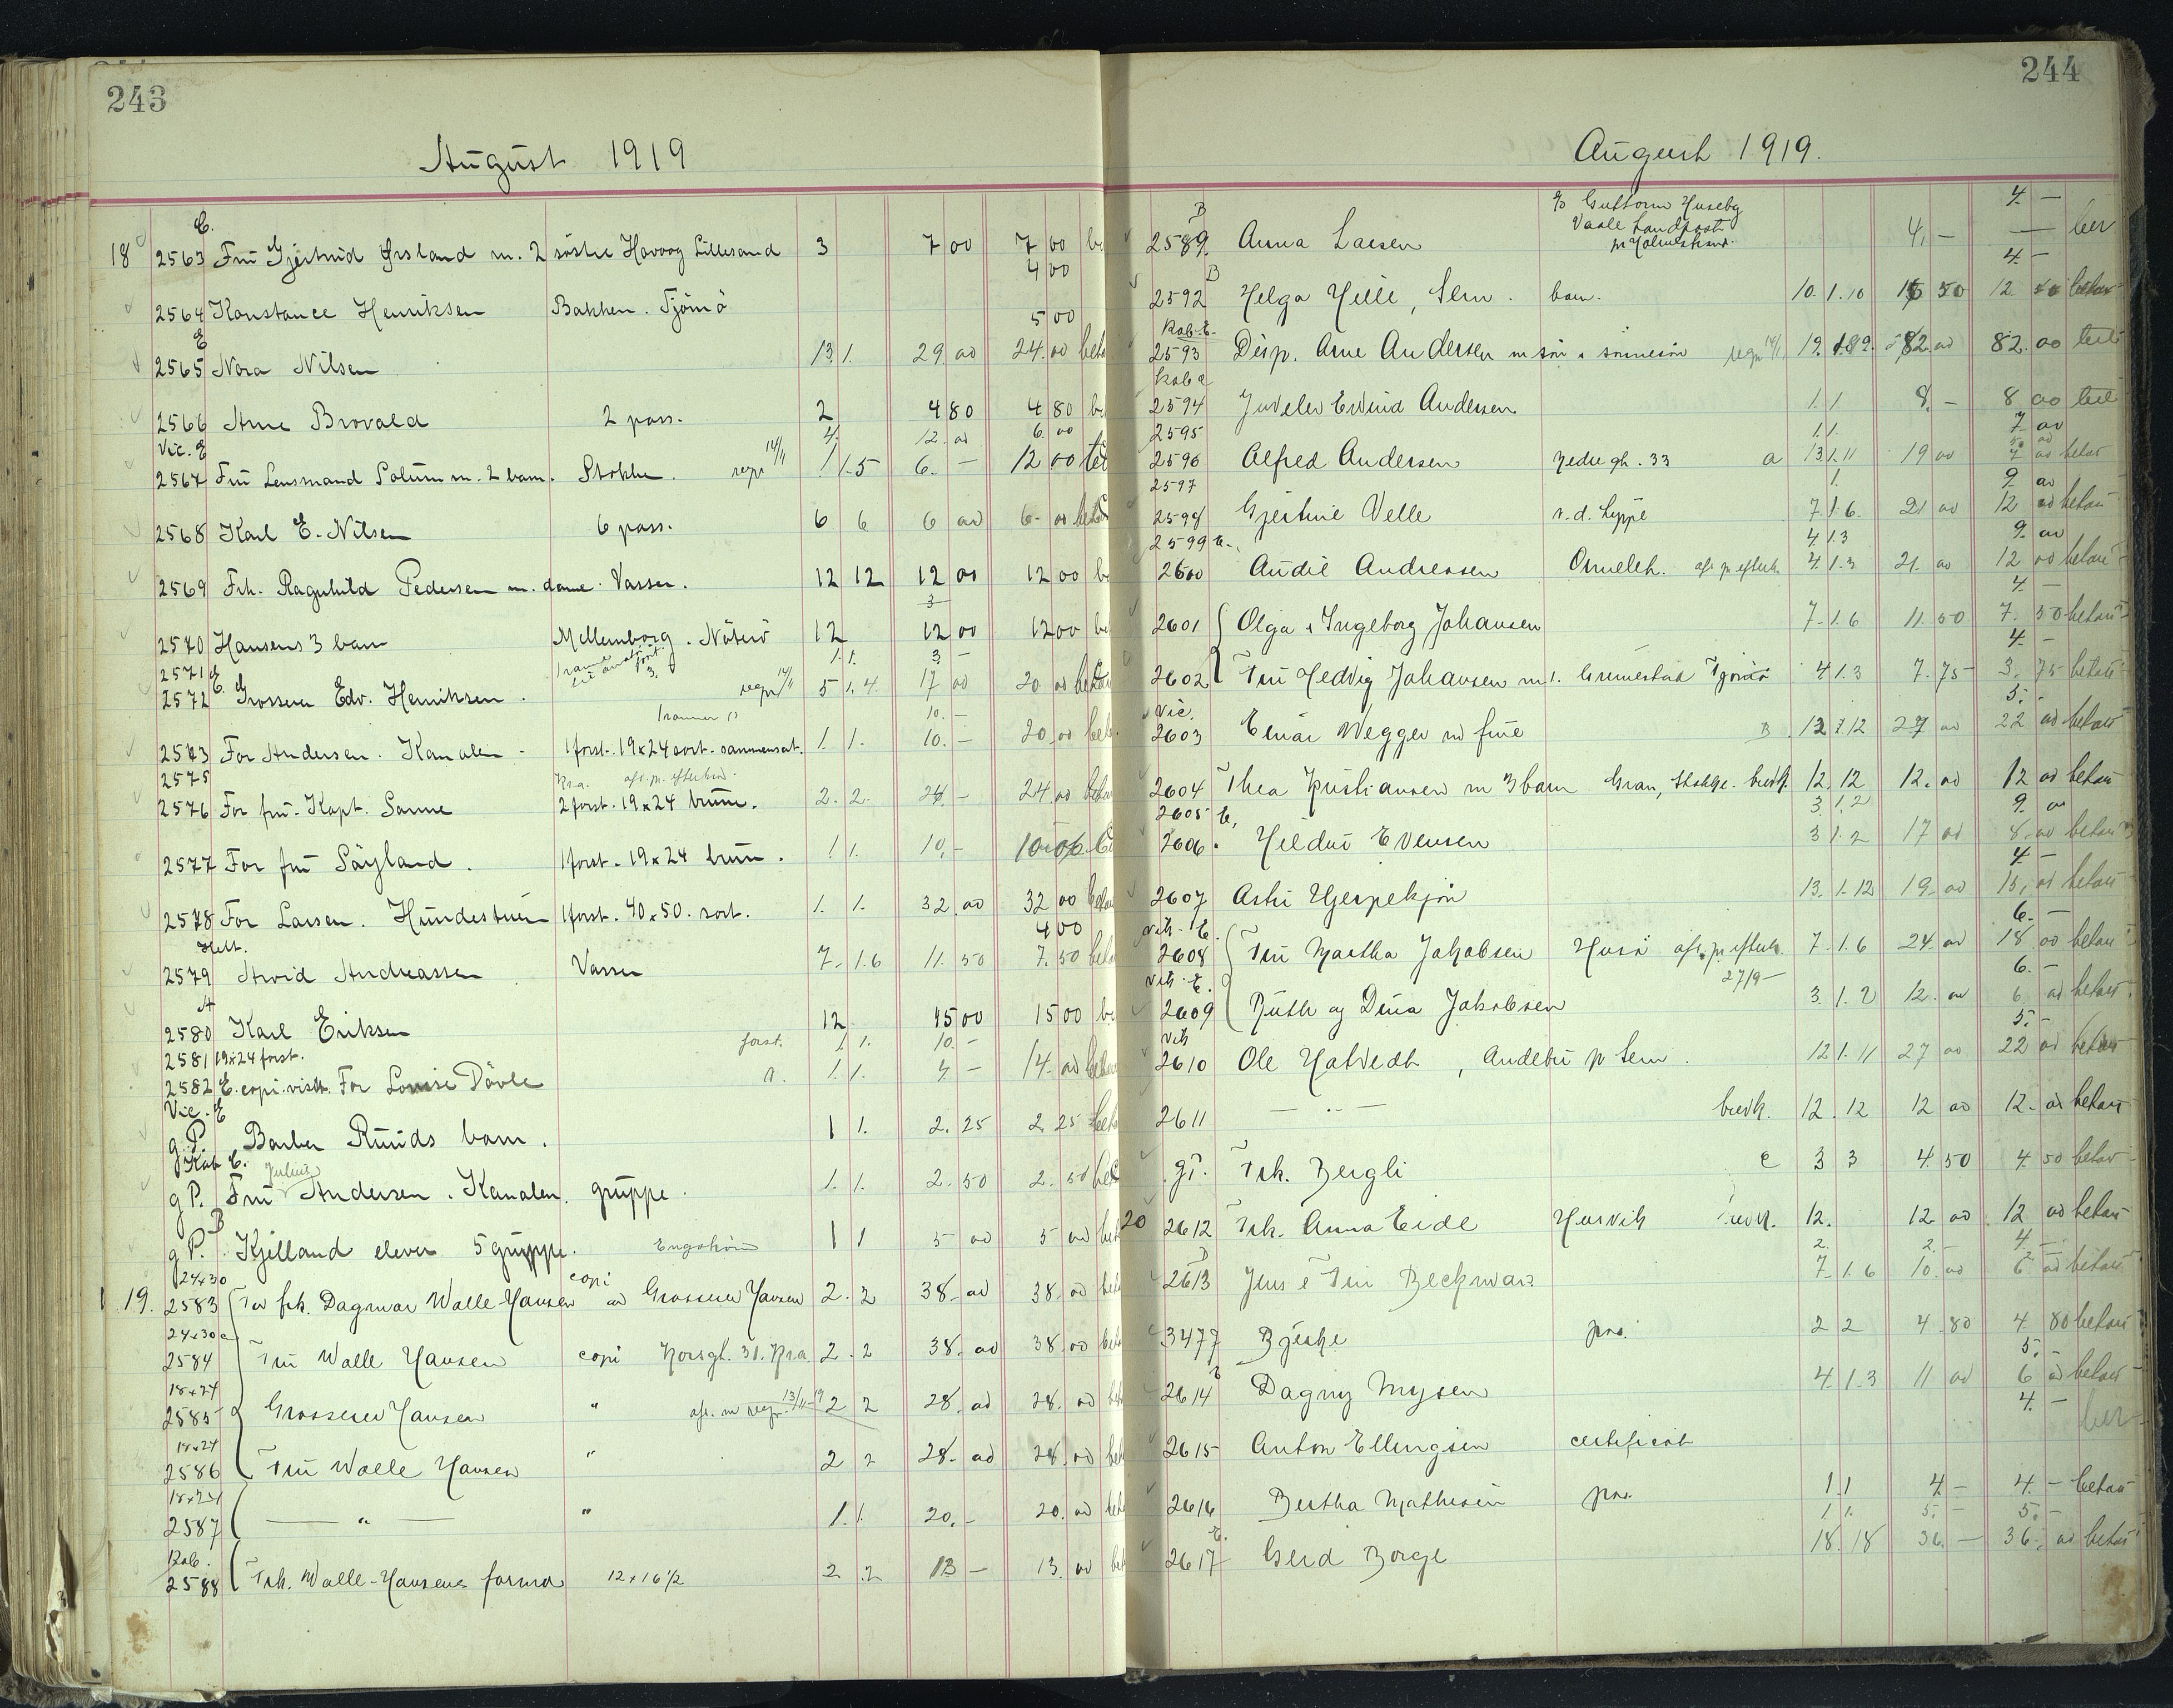 243
August 1919
E.
18 2563 Frü Gjertrud Ørsland m. 2 søstre Havoog Lillesand 3 7 00 7 00
4 00
2564 Konstance Henriksen Bakken. Tjömö
5 00
E
2565 Nora Nilsen 13 1. 29 00 24 00
2566 Arne Brovald 2 pass. 2 4 80 4 80
Vic. E 4. 12. 00 6. 00
2567 Frü Lensmand Solüm m. 2 barn. Stokke. regn 14/11 1 1.5 6. — 12 00
2568 Karl E. Nilsen 6 pass. 6 6 6 00 6 00
2569 Frk. Ragnhild Pedersen m. dame. Vasser. 12 12 12 00 12 00
3
2570 Hansens 3 barn Mellemborg. Nöterö 12 12 00 12 00
2571 E 1 1. 3. —
2572 E. Grosserer Edv. Henriksen. regn 14/11 5 1.4. 17 00 20 00
1 ramme 10. —
2573 For Andersen. Kanalen - 1 forst. 19x24 sort. sammensat. 1. 1. 10. — 20 00
2575 Kra. afs. p. efterkrav.
2576 For frü. Kapt. Sanne 2 forst. 19x24 brün. 2. 2. 24 — 24 00
2577 For frü Söyland. 1 forst. 19x24 brün. 1 1. 10. — 10 00
2578 For Larsen. Hündestüen 1 forst. 40x50. sort. 1. 1. 32 00 32 00
Helt. 4 00
2579 Arvid Andreassen Vasser 7. 1.6 11. 50 7. 50
A
2580 Karl Eriksen 12 15 00 15 00
2581 19x24 forst. forst. 1 1. 10. —
2582 E. copi. visit. For Louise Dövle 1. 1. 4 — 14. 00
Vic. E
g.P. Barber Rüüds barn. 1 1. 2. 25 2. 25
Kab E. Julius
g P. Frü Andersen. Kanalen. grüppe. 1. 1. 2. 50 2. 50
B
g P. Kjelland elever 5 grüppe. Engström 1 1 5 00 5 00
24x30 copi
19. 2583 For frk. Dagmar Walle-Hansen Grosserer Hansen 2. 2 38. 00 38. 00
24x30
2584 Frü Walle Hansen copi Korsgt. 31. Kra. 2. 2 38. 00 38. 00
18x24
2585 Grosserer Hansen " afs. m regn. 13/11-19 2 2 28. 00 28. 00
18x24
2586 Frü Walle Hansen " 2 2 28. 00 28. 00
18x24
2587 — " — " 1. 1. 20. — 20. 00
Kab.
2588 Frk. Walle-Hansens farmor 12x16 1/2 2 2 13 — 13. 00
244
August 1919.
B Guttorm Huseby 4. —
2589 Anna Larsen Vaale Landpost 4. — —
pr Holmestrand. 4. —
B
2592 Helga Hille, Sem. barn. 10. 1. 10 50 12 betalt
Kab. E.
2593 Disp. Arne Andersen m sön & sönnesön regn 14/11 82. 00 82. 00
Kab
2594 Jüveler Eivind Andersen 1. 1. 8. — 8 00
2595 1. 1. 7 00
2596 Alfred Andersen Nedregt. 33 a 13 1. 11 19 00 betalt
2597 1. 9. 00
2598 Gjertine Velle v. d. hyppe 7. 1. 6. 21 00 12 00 betalt
2599 E. 4 1. 3 9. 00
2600 Aüdie Andressen afs. p. efterk. 4. 1. 3 21. 00 12 00 betalt
4. —
2601 Olga & Ingeborg Johansen 7. 1. 6 11. 50 7. 50 betalt
4. —
2602 Frü Hedvig Johansen m 1. Grimestad Tjömö 4 1. 3 7. 75 3. 75 betalt
Vic. 5. -
2603 Einar Wegger m früe B 13 1. 12 27 00 22 00 betalt
2604 Thea Kristiansen m 3 barn Gran, Stokke. brevk. 12. 12 12. 00 12 00 betalt
2605 E. 3 1. 2 9. 00
2606 Hildür Evensen 3 1. 2 17 00 8 00 betalt
4. —
2607 Astri Hjerpekjön 13. 1. 12 19. 00 15. 00 betalt
Vik. E. 6. —
2608 Frü Martha Jakobsen Husö afs. p. efterk. 7. 1. 6 24. 00 18 00 betalt
Vik. E. 27/9 — 6. —
2609 Rüth og Dina Jakobsen 3. 1. 2 12. 00 6 00 betalt
Vik 5. —
2610 Ole Hotvedt, Andebü p Sem. 12 1. 11 27 00 22 00 betalt
2611 — " — brevk. 12. 12 12 00 12. 00 betalt
gP. Frk. Bergli E 3 3 4. 50 4. 50 betalt
20 2612 Frk. Anna Eide Hüsvik brevk. 12. 12 00 12 00 betalt
B 2. 2. — 4 —
2613 Jens & Frü Beckmann 7. 1. 6 10. 00 6 00 betalt
3477 Bjerke pas. 2 2 4. 80 4. 80 betalt
5. —
2614 Dagny Mysen 4 1. 3 11 00 6 00 betalt
4. —
2615 Anton Ellingsen certificat
2616 Bertha Mathesen pas. 1 1 4. — 4. — betalt
E. 1 1. 5. — 5. —
2617 Gerd Borge 18. 18 36. — 36. 00 betalt